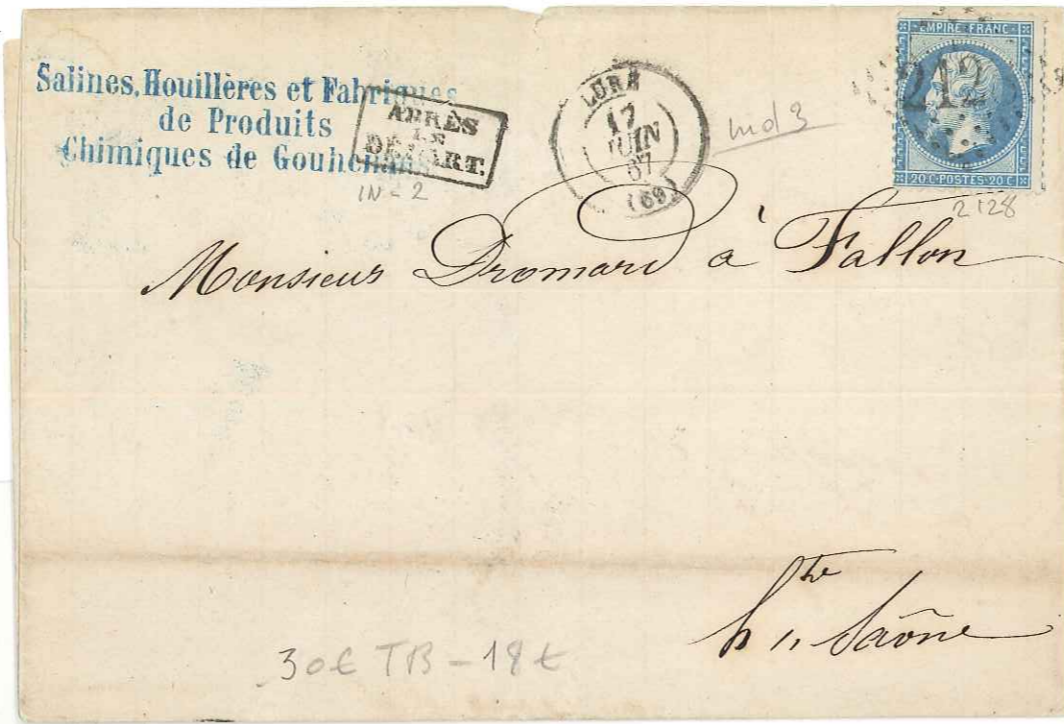 Salines, Houillères et Fabriques
de Produits
Chimiques de Gouhenans
APRÈS
LE
DÉPART.
IN - 2
LURE
17
JUIN
67
(69)
Ind 3
EMPIRE FRANC
212
20 C POSTES 20 C
2128
Monsieur Dromard à Fallon
hte Saône
30€ TB - 18€